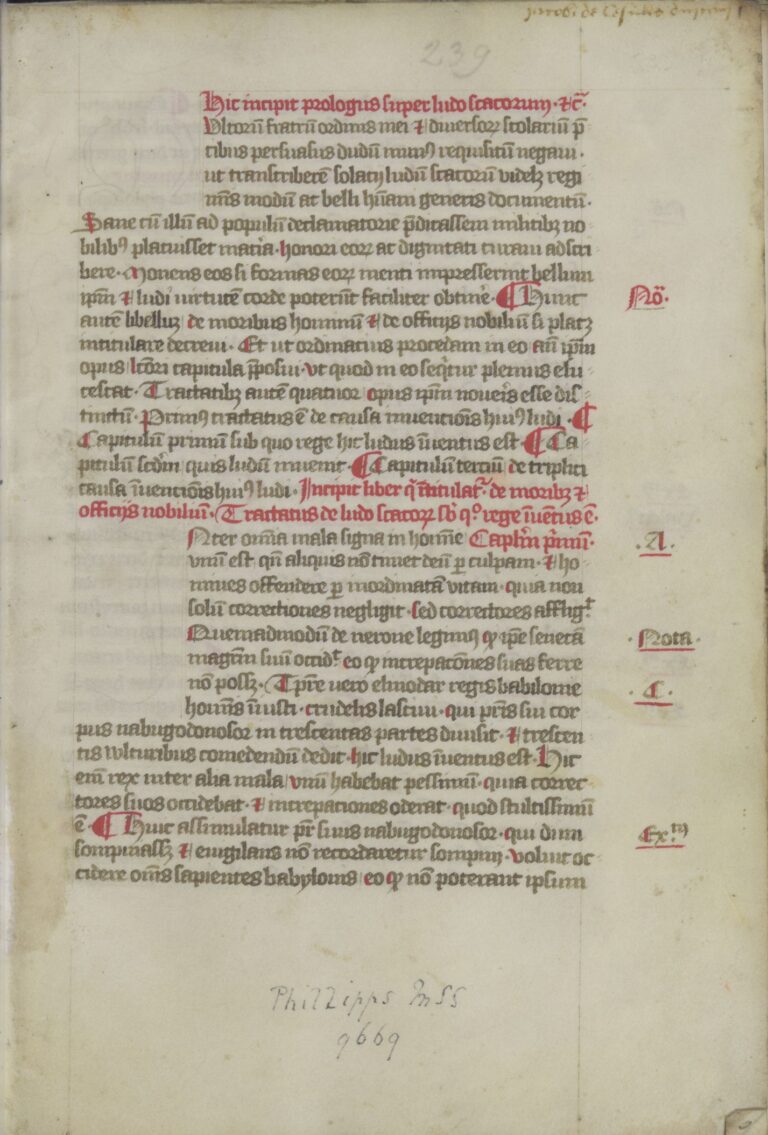 Jacobi de Cesulis
239
Hic incipit prologus super ludo scacorum · ⁊c̃·
Ultoru᷑ fratrū ordinis mei ⁊ diversoꝝ scolariū p̄
cibus persuasus dudum minꝰ requisitū negavi ·
ut transcriberē solacij ludū scacorū videlꝫ regi
minis modum at belli hūam generis documentū ·
Sane cū illum ad populū declamatorie p̄dicassem militibꝫ no
bilibꝰ placuisset mat̄ia · honori eoꝝ ac dignitati curam adscri
bere · Monens eos si formas eoꝝ menti impresserint bellum
ip̄m ⁊ ludi virtutē corde poterūt faciliter obtinē · ¶ Hunc
autē libelluꝫ de moribus hominū ⁊ de officijs nobiliū si placꝫ
intitulare decrevi · Et ut ordinatius procedam in eo an̄ ip̄m
opus lc̄ori capitula p̄posui · ut quod in eo seq̄tur plenius elu
cescat · Tractatibꝫ autē quatuor opus ip̄m noveris esse dis
tinctū · Primꝰ tractatus ē de causa invencionis huiꝰ ludi · ¶
Capitulū primum sub quo rege hic ludus īventus est · ¶ Ca
pitulū scdm̄ quis ludū invenit · ¶ Capitulū terciū de triplici
causa īvencionis huiꝰ ludi · Incipit liber q̄ ītitulat᷑ · de moribꝫ ⁊
officijs nobiliū · Tractatus de ludo scacoꝝ sb̄ qͦ rege īvētus ē ·
Nter omnia mala signa in homine Capl̄m p̄imū ·
unū est qn̄ aliquis nō timet deū per culpam · ⁊ ho
mines offendere ꝑ inordinatā vitam · quia non
solū correctiones negligit · sed correctores affligᵗ
Quemadmodū de nerone legimꝰ ꝙ ip̄e senecā
magr̄m suū occidᵗ eo ꝙ increpacōnes suas ferre
nō possꝫ · Tp̄re vero elmodar regis babilonie
hominis īiusti · crudelis lascivi · qui pr̄is sui cor
pus nabugodonosor in trescentas partes divisit · ⁊ trescen
tis vulturibus comedendū dedit · hic ludus īventus est · Hic
em̄ rex inter alia mala unū habebat pessimū · quia correc
tores suos occidebat · ⁊ increpationes oderat · quod stultissimū
ē · ¶ Huic assimulatur pr̄ suus nabugodonosor · qui dum
sompniassꝫ ⁊ evigilans nō recordaretur sompnij · voluit oc
cidere om̄s sapientes babylonis eo ꝙ nō poterant ipsum
No᷑ ·
· A ·
· Nota ·
· C ·
Exᵐ
Phillipps MSS
9669